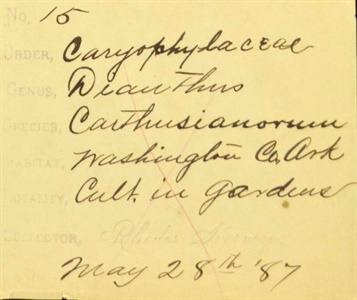 No. 15
Order, Caryophylaceae
Genus, Dianthus
Species, Carthusianorum
Habitat, Washington Co, Ark
Locality, Cult. in gardens
Collector,
May 28th '87